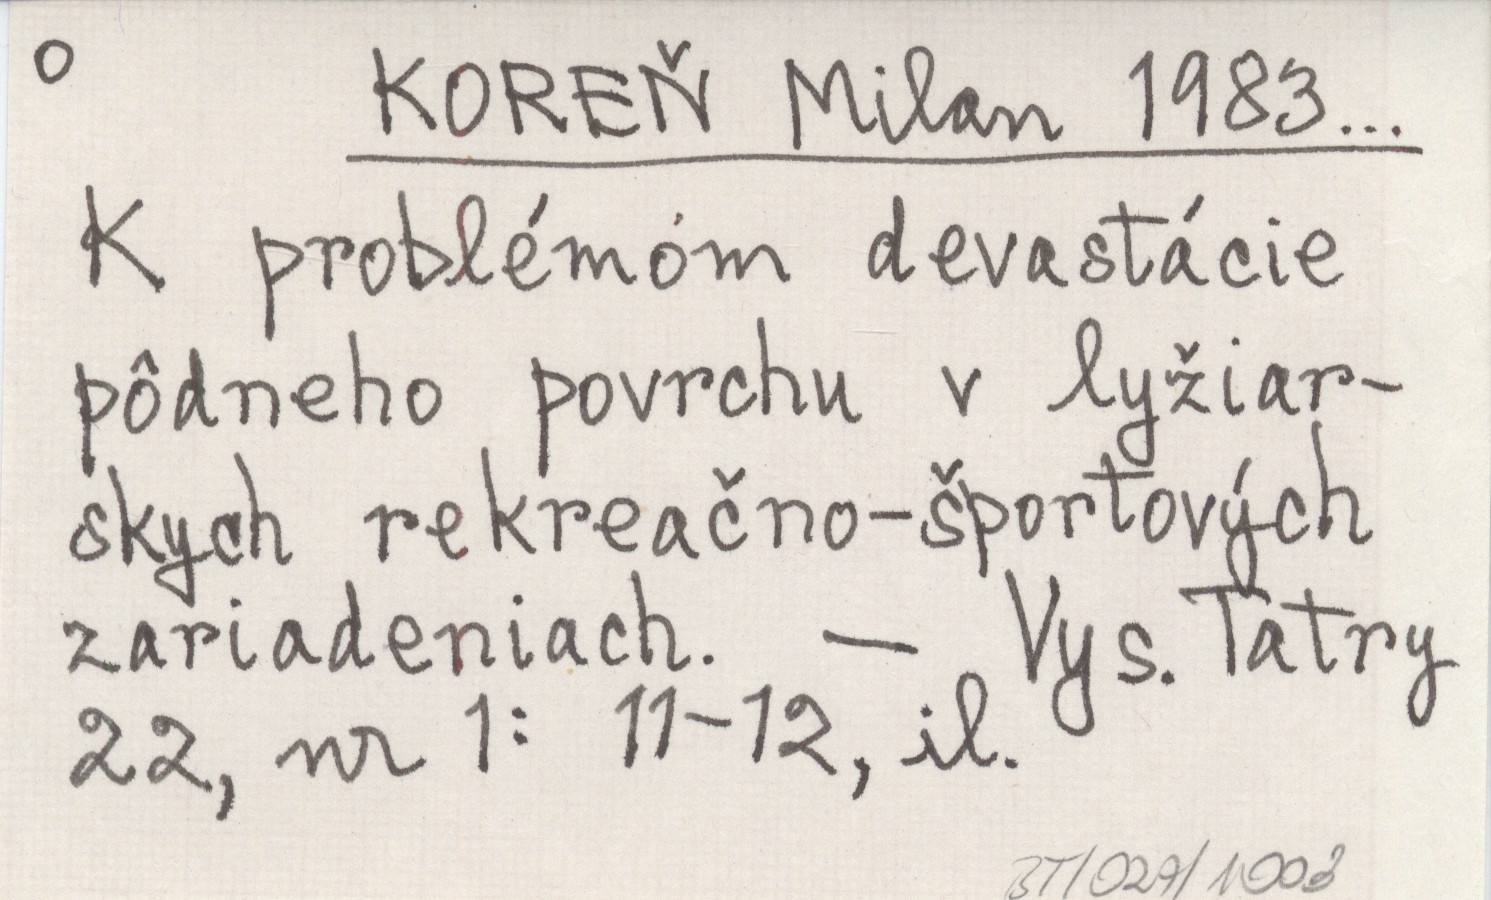 o KOREŇ Milan 1983...
K problémóm devastácie
pôdneho povrchu v lyžiar-
skych rekreačno-športových
zariadeniach. — Vys. Tatry
22, nr 1: 11-12, il.
BT/027/1003